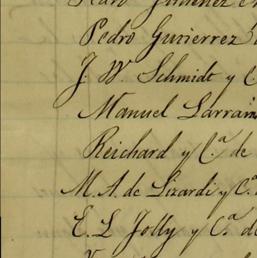 Pedro Jimenez
Pedro Gutierrez
J. W. Schmidt y C
Manuel Larrain
Reichard y C.ª de
M. A. de Lizardi y C.ª
E. L Jolly y C.ª de